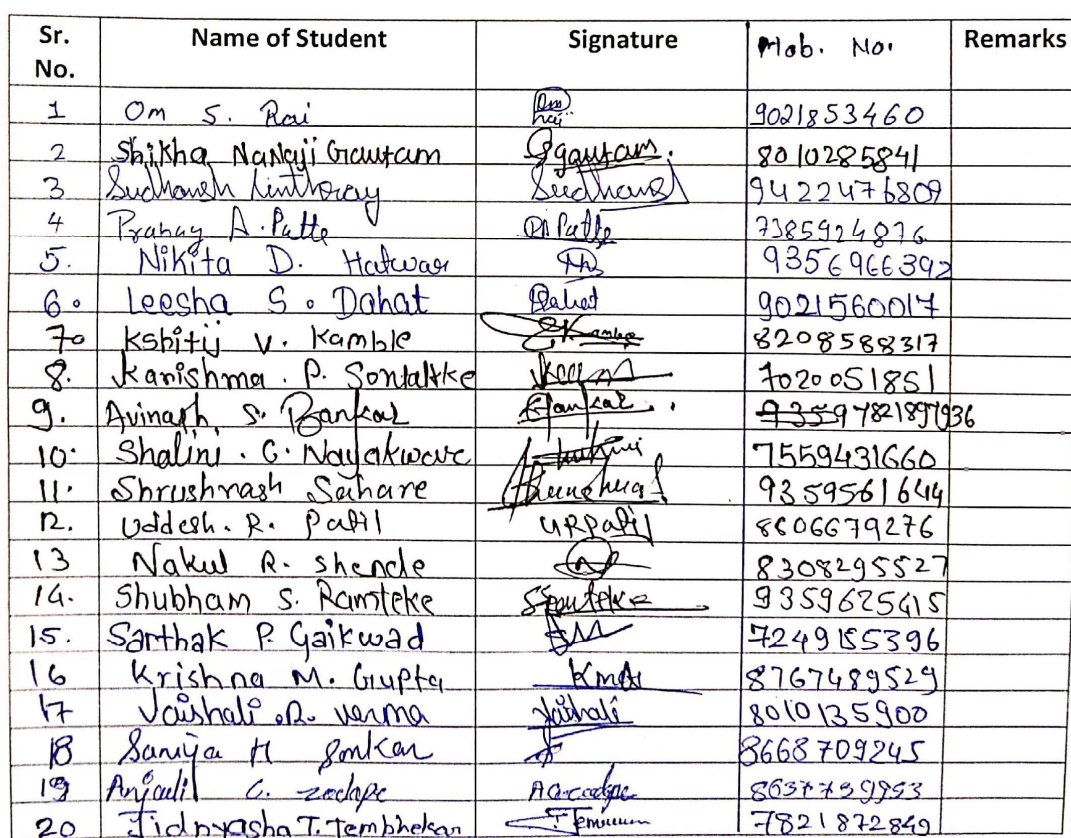 Sr. No. Name of Student Signature Mob. No. Remarks
1 Om S. Rai Om Rai 9021853460
2 Shikha NaNaji Gautam Sgautam. 8010285841
3 Sudhansh Linthoray Sudhansh 9422476809
4 Pranay A. Patte PAPatte 7385924876
5. Nikita D. Hatwar 9356966392
6. Leesha S. Dahat Dahat 9021560017
7. Kshitij V. Kamble Kamble 8208588317
8. Karishma. P. Sontakke 7020051851
9. Avinash S. Bankar Bankar. 9359 7821897936
10. Shalini. C. Nayakwar Shalini 7559431660
11. Shrushnash Sahare 9359561644
12. Uddesh. R. Patil URPatil 8606679276
13 Nakul R. Shende 8308295527
14. Shubham S. Ramteke SRamteke 9359625415
15. Sarthak P. Gaikwad 7249155396
16 Krishna M. Gupta 8767489529
17 Vaishali .R. verma Vaishali 8010135900
18 Saniya H Sonkar 8668709245
19 Anjali C. zodape 8637739953
20 Jidnyasha T. Tembhekar 7821872849